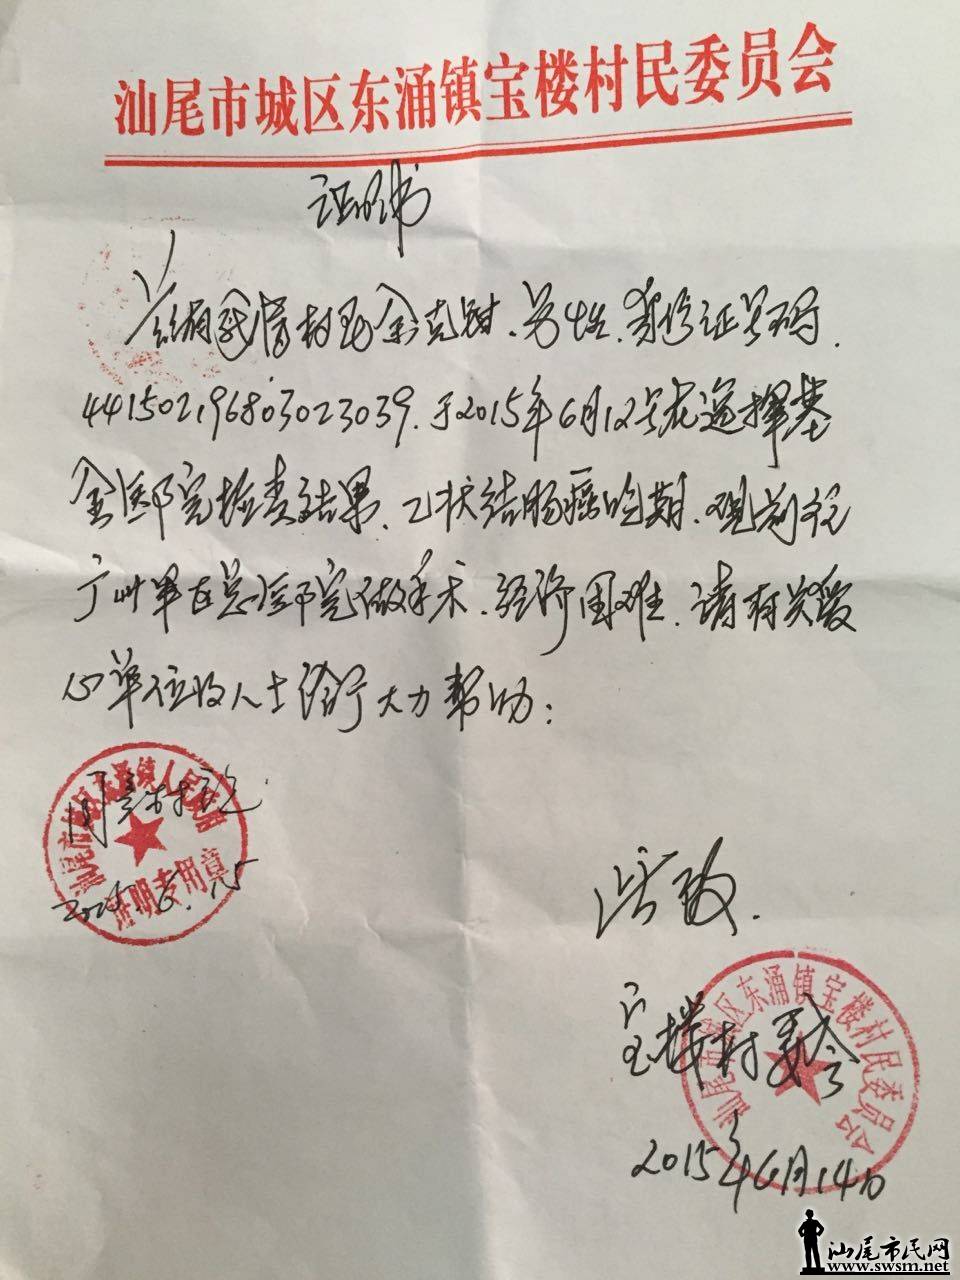 汕尾市城区东涌镇宝楼村民委员会
证明书
兹有我管村民余克甜、男性、身份证号码、
441502196803023039. 于2015年6月12号在逸挥基
金医院检查结果、乙状结肠癌晚期、现前往
广州军区总医院做手术、经济困难、请有关爱
心单位及人士给予大力帮助：
汕尾市城区东涌镇人民政府
证明专用章
同意村
6.15
此致.
宝楼村委会
汕尾市城区东涌镇宝楼村民委员会
2015年6月14日
汕尾市民网
www.swsm.net